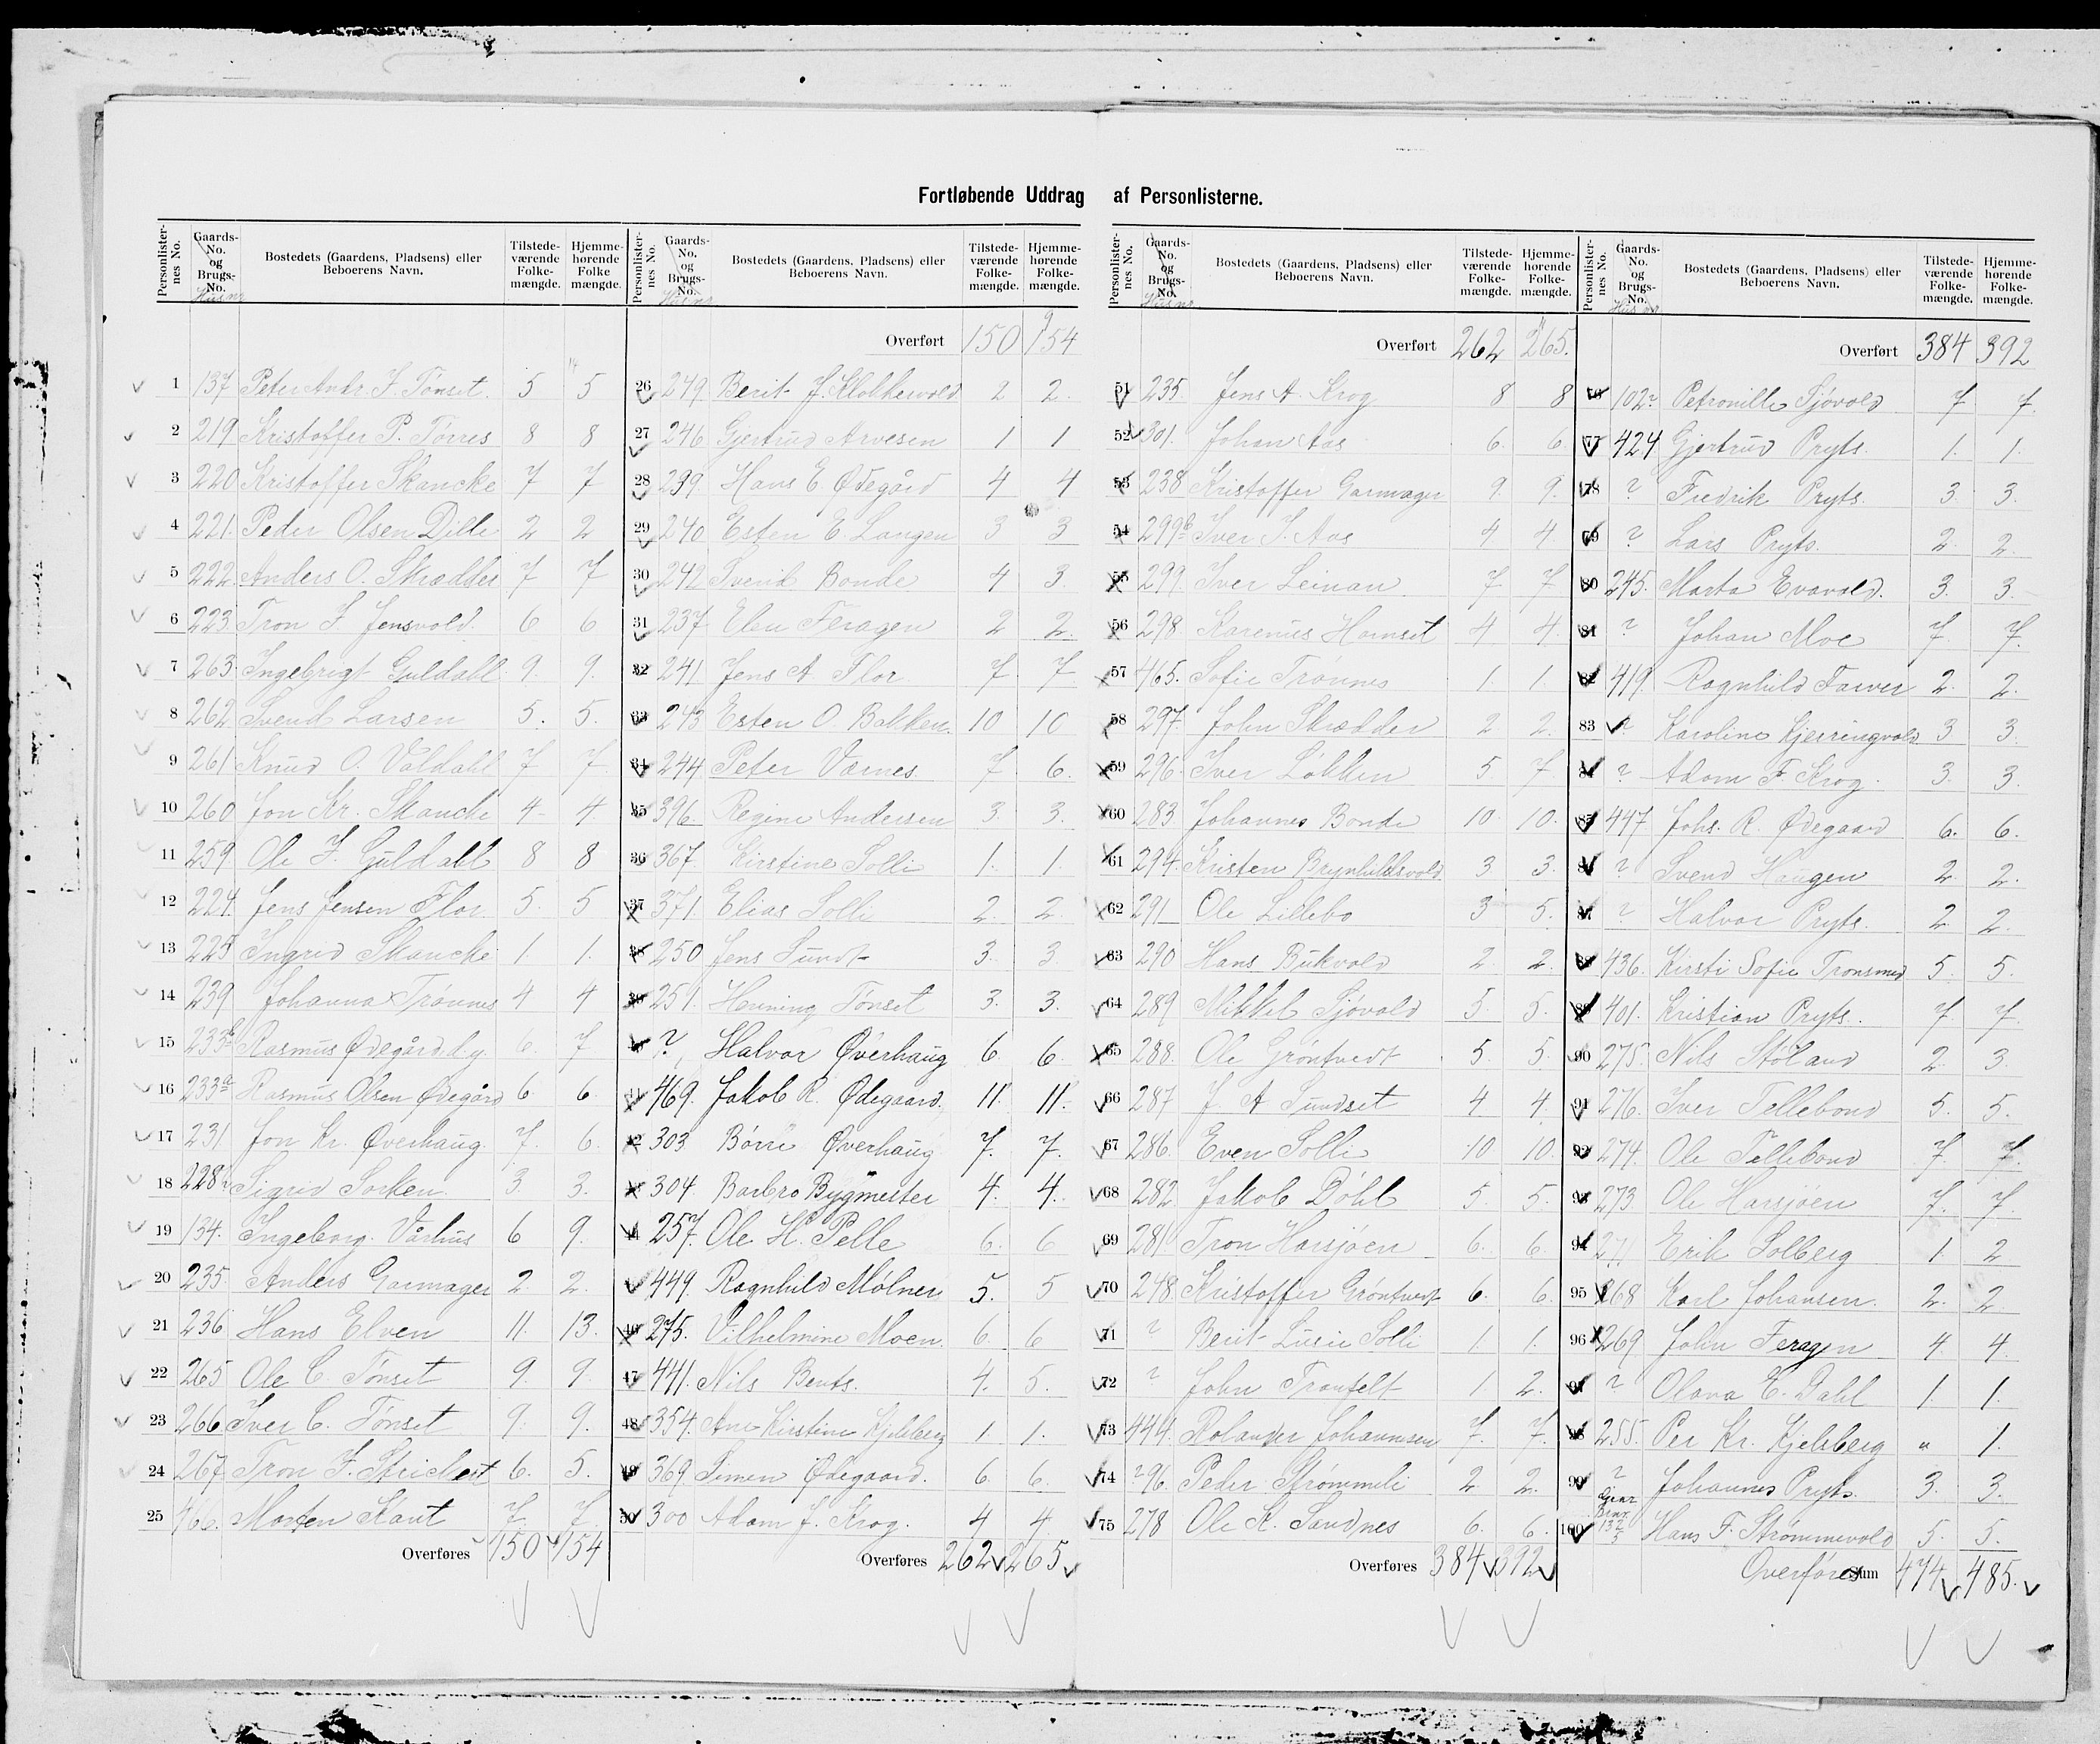 Fortløbende Uddrag af Personlisterne.
Personlisternes No. Gaards-No. og Brugs-No. Husnr Bostedets (Gaardens, Pladsens) eller Beboerens Navn. Tilstedeværende Folkemængde. Hjemmehørende Folkemængde.
1 137 Peter Andr. J. Tønset. 5 5
2 219 Kristoffer P. Tørres 8 8
3 220 Kristoffer Skancke 7 7
4 221. Peder Olsen Dille 2 2
5 222. Anders O. Skrædder 7 7
6 223 Tron J. Jensvold. 6 6
7 263 Ingebrigt Guldahl 9. 9.
8 262 Svend Larsen 5. 5.
9 261 Knud O. Våldahl 7 7
10 260 Jon Kr. Skancke 4 4
11 259. Ole J. Guldahl 8 8
12 224. Jens Jensen Flor. 5. 5
13 225 Ingrid Skancke 1. 1.
14 239 Johanna Trønnes 4 4
15 233b Rasmus Ødegård d.y. 6. 7
16 233a Rasmus Olsen Ødegård 6. 6.
17 231 Jon Kr. Øverhaug. 7. 6.
18 228 Sigrid Sorken 3. 3.
19 134. Ingeborg. Vårhus 6 9.
20 235. Anders Garmager 2. 2.
21 236 Hans Elven 11. 13.
22 265 Ole C. Tønset 9. 9.
23 266 Iver C. Tønset 9. 9.
24 267 Tron J. Strickert 6. 5.
25 466. Morten Kant 7. 7.
Overføres 150 154
Personlisternes No. Gaards-No. og Brugs-No. Husnr Bostedets (Gaardens, Pladsens) eller Beboerens Navn. Tilstedeværende Folkemængde. Hjemmehørende Folkemængde.
Overført 150 154
26 249 Berit J. Klokkervold 2 2.
27 246 Gjertrud Arvesen 1 1
28 239 Hans E. Ødegård 4 4
29 240 Esten E. Langen 3 3
30 242 Svend Bonde 4 3.
31 237 Elen Feragen 2 2.
32 241 Jens A. Flor. 7 7
33 243 Esten O. Bakken. 10 10
34 244 Peter Værnes. 7 6.
35 396 Regine Andersen 3. 3.
36 367. Kirstine Solli 1. 1.
37 371. Elias Solli 2. 2.
38 250 Jens Sundt 3. 3.
39 251. Henning Tønset 3. 3.
? Halvor Øverhaug 6. 6.
41 469. Jakob R. Ødegaard. 11. 11.
42 303 Børre Øverhaug 7. 7.
304 Barbro Bygmester 4. 4.
257. Ole H. Pelle 6. 6
449. Ragnhild Mølner 5. 5
46 275. Vilhelmine Moen. 6. 6
47 441. Nils Bents. 4. 5.
48 354. Ane Kirstine Kjelsberg 1 1.
49 369 Simen Ødegaard. 6. 6.
50 300 Adam J. Krog. 4 4
Overføres 262 265
Personlisternes No. Gaards-No. og Brugs-No. Husnr Bostedets (Gaardens, Pladsens) eller Beboerens Navn. Tilstedeværende Folkemængde. Hjemmehørende Folkemængde.
Overført 262 265.
51 235. Jens A. Krog 8 8
52 301. Johan Aas 6. 6
53 238 Kristoffer Garmager 9. 9.
54 299b Iver J. Aas 4 4.
55 299. Iver Leinan 7 7
56 298 Karenus Hamset 4 4.
57 465. Sofie Trønnes 1. 1.
58 297. John Skrædder 2. 2.
59 296. Iver Løkken 5. 7
60 283 Johannes Bonde 10. 10.
61 294. Kristen Brynhildsvold 3 3.
62 291 Ole Lillebo 3 5.
63 290 Hans Bukvold 2. 2.
64 289 Mikkel Sjøvold 5. 5.
65 288. Ole Grøntvedt 5. 5.
66 287 J. A Sundset 4 4
67 286. Even Solli 10 10.
68 282 Jakob Døhl 5. 5.
69 281. Tron Harsjøen 6. 6.
70 248 Kristoffer Grøntvedt 6. 6.
71 ? Berit Lusie Solli 1. 1.
72 ? John Tronfelt 1. 2.
73 444. Rolander Johannsen 7. 7.
74 ?96. Peder Strømmeli 2. 2.
75 278 Ole K. Sandnes 6. 6.
Overføres 384 392
Personlisternes No. Gaards-No. og Brugs-No. Husnr Bostedets (Gaardens, Pladsens) eller Beboerens Navn. Tilstedeværende Folkemængde. Hjemmehørende Folkemængde.
Overført 384 392
76 102? Petronille Sjøvold 7 7.
77 424 Gjertrud Pryts. 1. 1.
78 ? Fredrik Pryts. 3. 3.
79 ? Lars Pryts. 2. 2.
80 245. Marta Evavold. 3. 3.
81 ? Johan Moe 7. 7.
82 419. Ragnhild Farver 2. 2.
83 ? Karoline Kjerringvold 3 3.
84 ? Adam F. Krog. 3. 3.
85 447 Johs. R. Ødegaard 6. 6.
? Svend Haugen 2. 2.
? Halvor Pryts. 2. 2.
436. Kirsti Sofie Tronsmed 5. 5.
401. Kristian Pryts. 7. 7.
90 275. Nils Støland 2. 3.
91 276. Iver Tellebond 5. 5.
92 274. Ole Tellebond 7. 7.
93 273. Ole Harsjøen 7. 7.
94 271 Erik Solberg 1. 2
95 268 Karl Johansen. 2. 2.
96 269 John Feragen 4. 4.
97 ? Olava E. Dahl 1. 1.
98 255. Per Kr. Kjelsberg " 1.
99 ? Johannes Pryts. 3. 3.
100 Gnr Bnr 132 5 Hans F. Strømmevold 5. 5.
Overføres Sum 474 485.